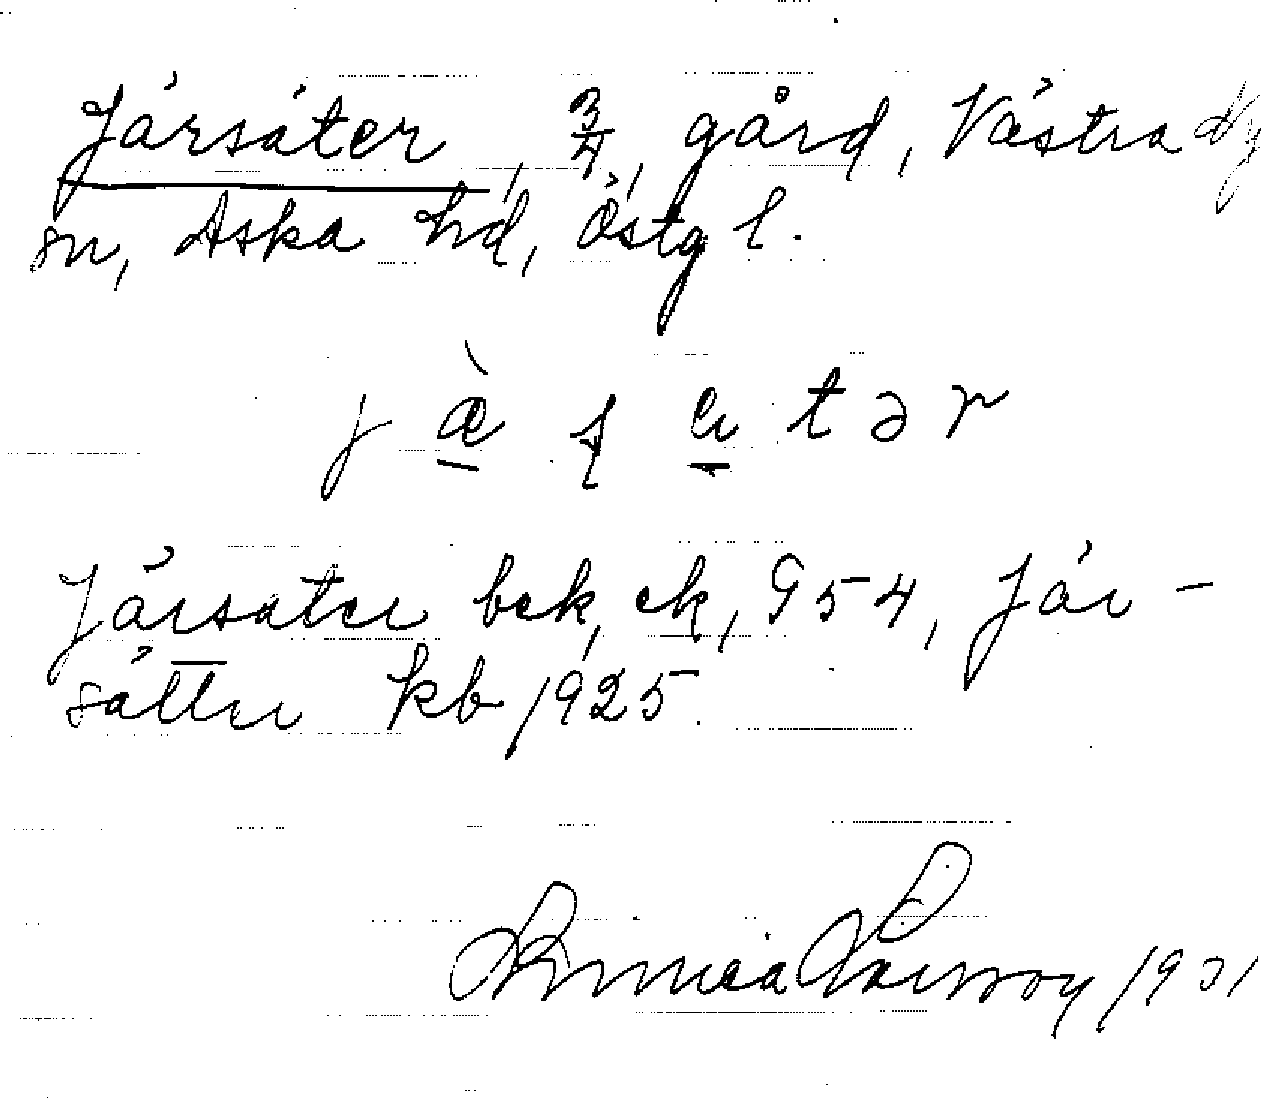 Järsäter, 3/4, gård, Västra Ny
sn, Aska hd, Östg l.
j æ̀ ʂ ä t ə r
Järsäter bek, ek, 954, Jär-
sätter kb 1925.
Linnea 1931